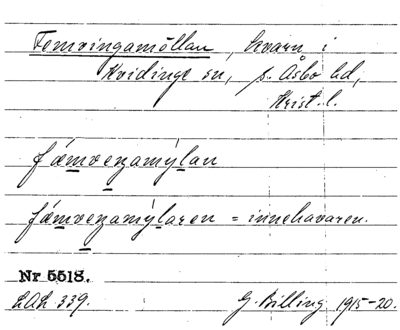 Femvingamöllan, kvarn i
Kvidinge sn, s. Åsbo hd,
Krist. l.
fæmveŋamýlan
fæmveŋamýlaren = innehavaren.
Nr 5518.
LAL 339. G. Billing 1915-20.